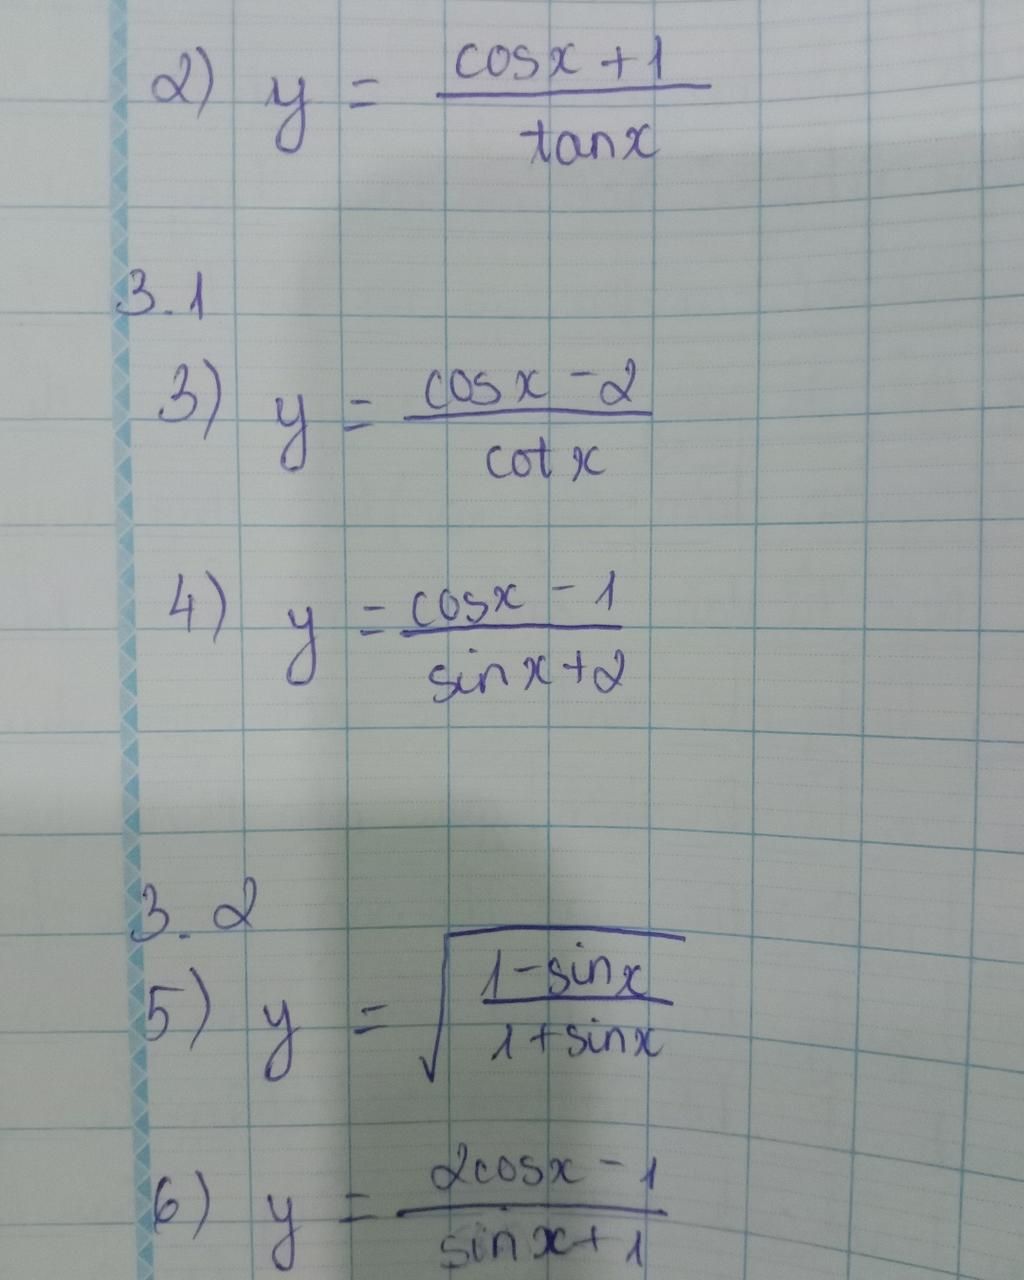 2) y = (cosx + 1) / (tanx)
3.1
3) y = (cosx - 2) / (cotx)
4) y = (cosx - 1) / (sinx + 2)
3.2
5) y = √((1 - sinx) / (1 + sinx))
6) y = (2cosx - 1) / (sinx + 1)